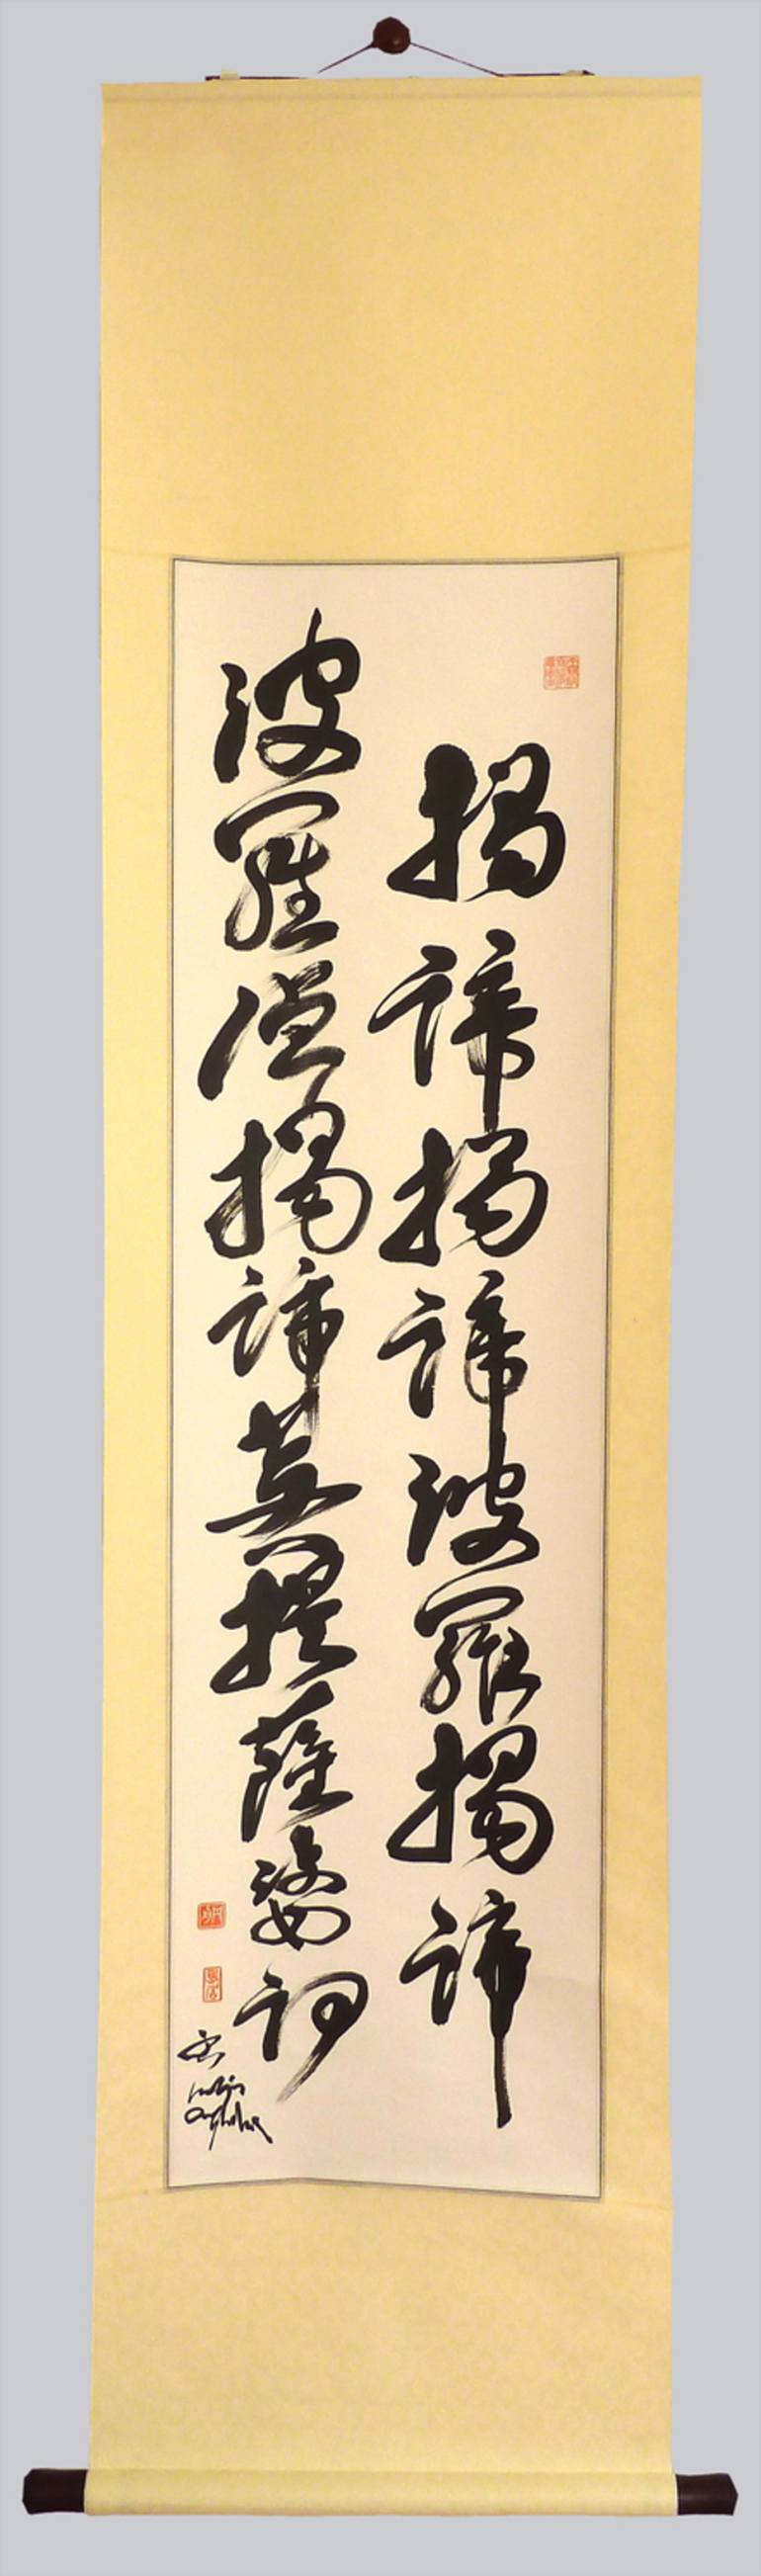 揭諦揭諦波羅揭諦
波羅僧揭諦菩提薩婆訶